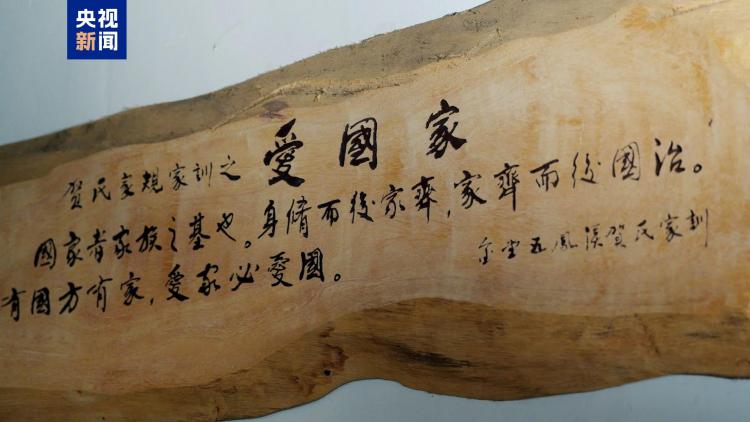 央视
新闻
賀氏家規家訓之 愛國家
國家者家族之基也。身脩而後家齊,家齊而後國治。
有國方有家,愛家必愛國。
金堂五鳳溪賀氏家訓